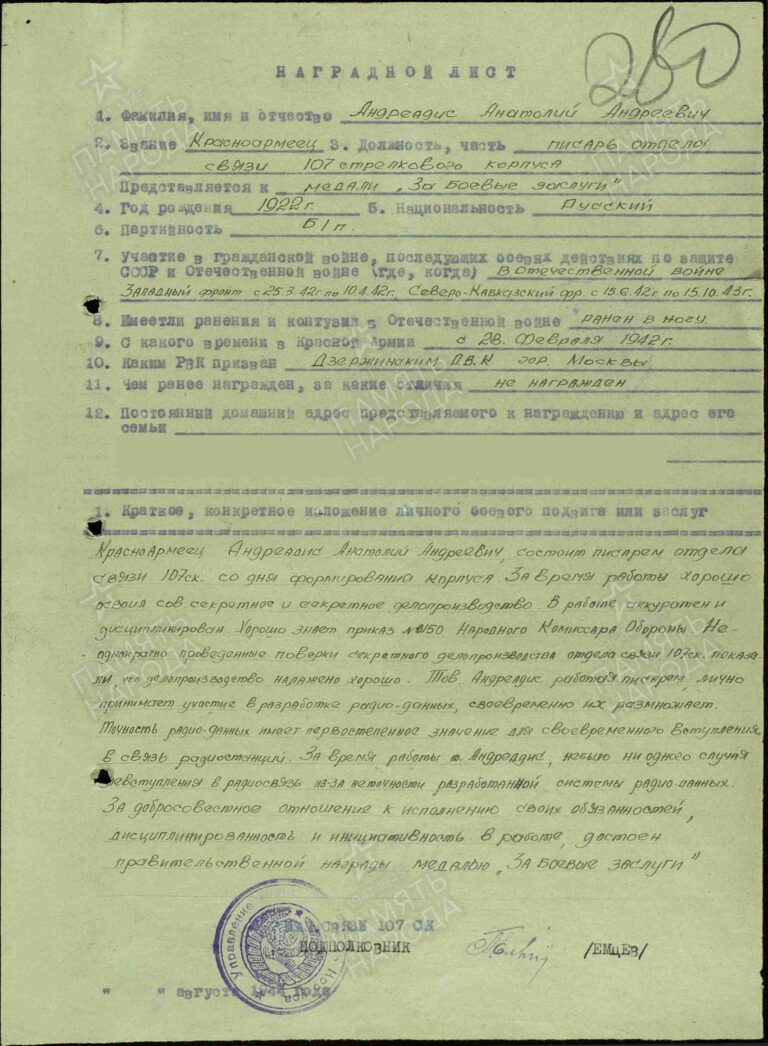 280
НАГРАДНОЙ ЛИСТ
1. Фамилия, имя и отчество Андреадис Анатолий Андреевич
2. Звание Красноармеец 3. Должность, часть писарь отдела
связи 107 стрелкового корпуса
Представляется к медали „За боевые заслуги"
4. Год рождения 1922 г. 5. Национальность Русский
6. Партийность Б/п.
7. Участие в гражданской войне, последующих боевых действиях по защите
СССР и Отечественной войне (где, когда) в Отечественной войне
Западный фронт с 25.3.42г по 10.4.42г, Северо-Кавказский фр. с 15.6.42г по 15.10.43г.
8. Имеет ли ранения и контузии в Отечественной войне ранен в ногу.
9. С какого времени в Красной Армии с 28. Февраля 1942г.
10. Каким РВК призван гор. Москвы
11. Чем ранее награжден, за какие отличия не награжден
12. Постоянный домашний адрес представляемого к награждению и адрес его
семьи
1. Краткое, конкретное изложение личного боевого подвига или заслуг
Красноармеец Андреадис Анатолий Андреевич, состоит писарем отдела
связи 107ск. со дня формирования корпуса. За время работы хорошо
освоил сов. секретное и секретное делопроизводство. В работе аккуратен и
дисциплинирован Хорошо знает приказ Народного Комиссара Обороны Не-
однократно проведенные поверки секретного делопроизводства отдела связи 107ск. показа-
ли, что делопроизводство налажено хорошо. Тов. Андреадис работая писарем, лично
принимает участие в разработке радио-данных, своевременно их размножает.
Точность радио-данных имеет первостепенное значение для своевременного вступления
в связь радиостанций. За время работы т. Андреадис, небыло ни одного случая
невступления в радиосвязь из-за неточности разработанной системы радио-данных.
За добросовестное отношение к исполнению своих обязанностей,
дисциплинированность и инициативность в работе, достоен
правительственной награды медалью „За боевые заслуги"
Нач. Связи 107 СК
ПОДПОЛКОВНИК /ЕМЦЕВ/
" " августа 1944 года
Управление Корпуса
ПАМЯТЬ
НАРОДА